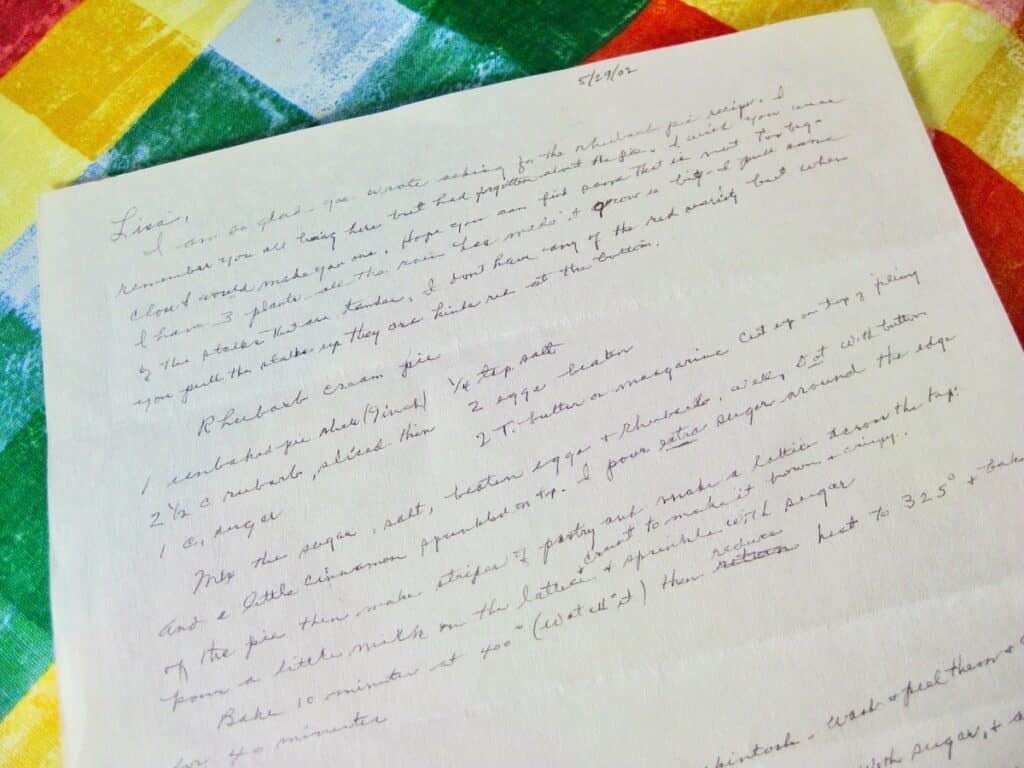 5/29/02
Lisa,
I am so glad you wrote asking for the rhubarb pie recipe. I
remember you all being here but had forgotten about the pie. I wish you were
close I would make you one. Hope you can find some that is not too big.
I have 3 plants all the rain has made it grow so big - I pull some
of the stalks that are tender. I don't have any of the red variety but when
you pull the stalks up they are kinda red at the bottom.
Rhubarb cream pie
1 unbaked pie shell (9 inch) 1/4 tsp salt
2 1/2 c rubarb, sliced thin 2 eggs beaten
1 c., sugar 2 T. butter or margarine cut up on top of filling
Mix the sugar, salt, beaten eggs + rhubarb. well, Dot with button
and a little cinnamon sprinkled on top. I pour extra sugar around the edge
of the pie then make strips of pastry and make a lattice across the top.
pour a little milk on the lattice crust to make it brown + crispy.
+ sprinkle with sugar
Bake 10 minutes at 400° (watch it) then reduce heat to 325° + bake
for 40 minutes
Wash + peel them +
with sugar, +